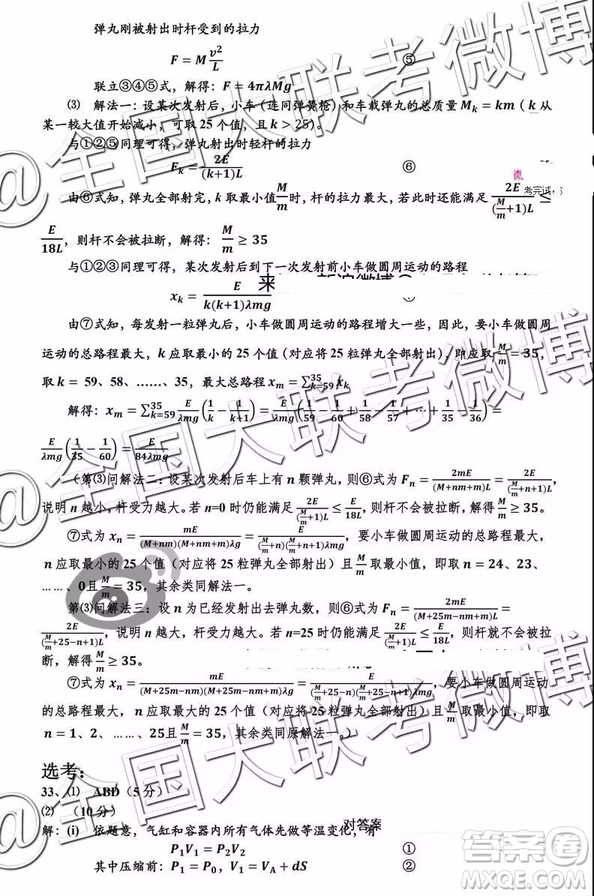 弹丸刚被射出时杆受到的拉力
F = M v²/L ⑤
联立③④⑤式，解得：F = 4πλMg
⑶ 解法一：设某次发射后，小车（连同弹簧枪）和车载弹丸的总质量 M_k = km（ k 从
某一较大值开始减小，可取 25 个值，且 k > 25）。
与①②⑤同理可得，弹丸射出时轻杆的拉力
E_k = 2E/((k+1)L) ⑥
由⑥式知，弹丸全部射完，k 取最小值 M/m 时，杆的拉力最大，若此时还能满足 2E/((M/m+1)L) ≤
E/18L，则杆不会被拉断，解得：M/m ≥ 35
与①②③同理可得，某次发射后到下一次发射前小车做圆周运动的路程
x_k = E/(k(k+1)λmg)
由⑦式知，每发射一粒弹丸，小车做圆周运动的路程增大一些，因此，要小车做圆周
运动的总路程最大，k 应取最小的 25 个值（对应将 25 粒弹丸全部射出），即应取
取 k = 59、58、……、35，最大总路程 x_m = ∑_{k=59}^{35} x_k
解得：x_m = ∑_{k=59}^{35} E/λmg (1/k − 1/(k+1)) =
E/λmg (1/35 − 1/60) = E/84λmg
（第⑶问解法二：设某次发射后车上有 n 颗弹丸，则⑥式为 F_n = 2mE/((M+nm+m)L) = 2E/((M/m+n+1)L)，
说明 n 越小，杆受力越大。若 n=0 时仍能满足 2E/((M/m+1)L) ≤ E/18L，则杆不会被拉断，解得 M/m ≥ 35。
⑦式为 x_n = mE/((M+nm)(M+nm+m)λg) = E/((M/m+n)(M/m+n+1)λmg)，要小车做圆周运动的总路程最大，
n 应取最小的 25 个值（对应将 25 粒弹丸全部射出）且 M/m 取最小值，即取 n = 24、23、
……、0且 M/m = 35，其余类同解法一。
第⑶问解法三：设 n 为已经发射出去弹丸数，则⑥式为 F_n = 2mE/((M+25m−nm+m)L) =
2E/((M/m+25−n+1)L)，说明 n 越大，杆受力越大。若 n=25 时仍能满足 则杆不会被拉
断，解得 M/m ≥ 35。
⑦式为 x_n = mE/((M+25m−nm)(M+25m−nm+m)λg) = E/((M/m+25−n)(M/m+25−n+1)λmg)，要小车做圆周运动
的总路程最大，n 应取最大的 25 个值（对应将 25 粒弹丸全部射出）且 M/m 取最小值，即取
n = 1、2、……、25且 M/m = 35，其余类同原解法一。）
选考：
33、⑴ ABD（5 分）
⑵ （10 分）
解：(i) 依题意，气缸和容器内所有气体先做等温变化，有 对答案
P₁V₁ = P₂V₂ ①
其中压缩前：P₁ = P₀，V₁ = V_A + dS ②
@全国大联考微博
答案圈
MXQE.COM